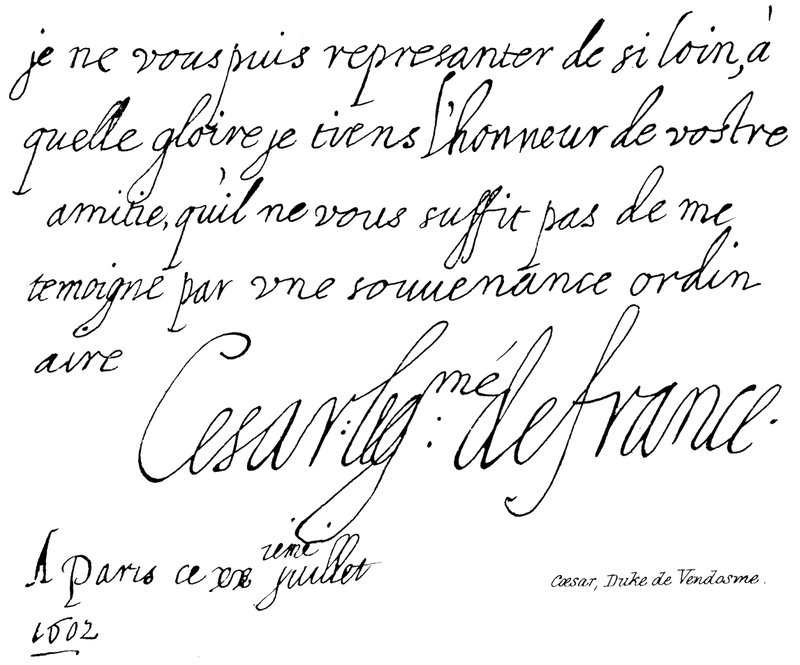 je ne vous puis represanter de si loin, à
quelle gloire je tiens l'honneur de vostre
amitie, qu'il ne vous suffit pas de me
temoigne par vne souuenance ordin
aire
Cesar: leg: mé de france.
A Paris ce xx ieme juillet
1602
Cæsar, Duke de Vendosme.